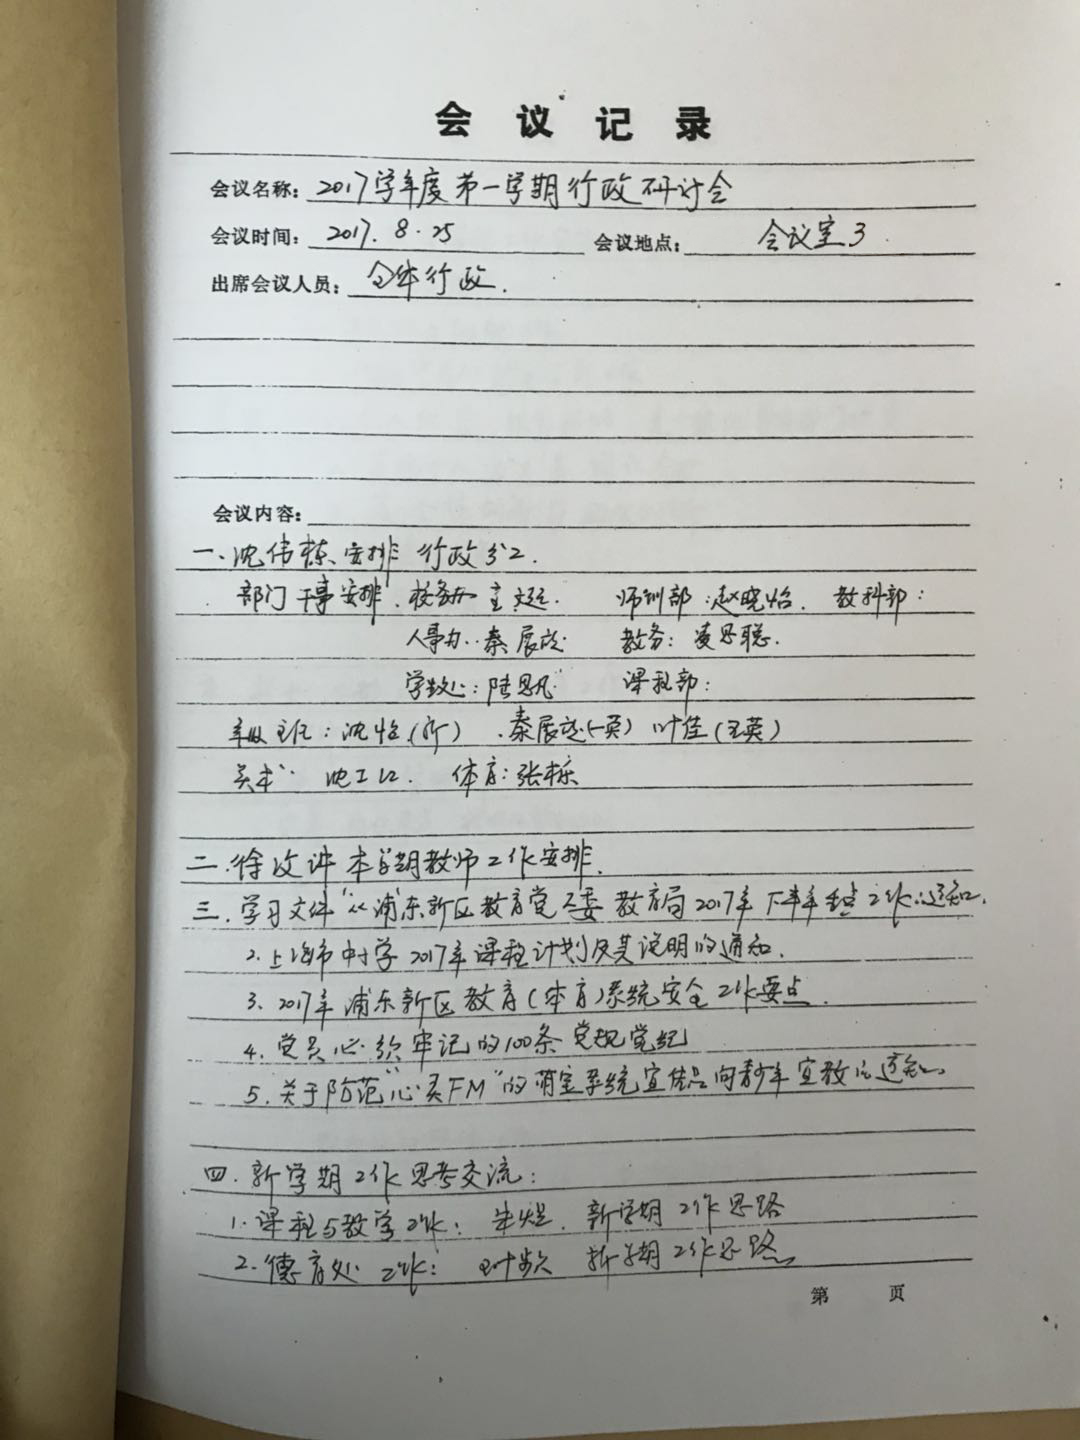 会议记录
会议名称: 2017学年度第一学期行政研讨会
会议时间: 2017.8.25 会议地点: 会议室3
出席会议人员: 全体行政.
会议内容:
一.沈伟栋 安排 行政分工.
部门干事安排. 校务办 师训部:赵晓怡. 教科部:
人事办: 秦展 教务: 凌思聪.
学教处:陆思凡 课程部:
年级主任: 沈怡 秦展 叶佳
沈 体育:张栎
二.徐 本学期教师工作安排.
三.学习文件“ 浦东新区教育党工委 教育局2017年下半年重点工作的通知.
2.上海市中小学2017年课程计划及其说明的通知.
3.2017年浦东新区教育(体育)系统安全工作要点.
4.党员必须牢记的100条党规党纪
5.关于防范“心灵FM”的 系统宣传品向青少年宣教的通知.
四.新学期工作思考交流:
1.课程与教学工作: 朱煜. 新学期工作思路
2.德育处工作: 新学期工作思路
第 页